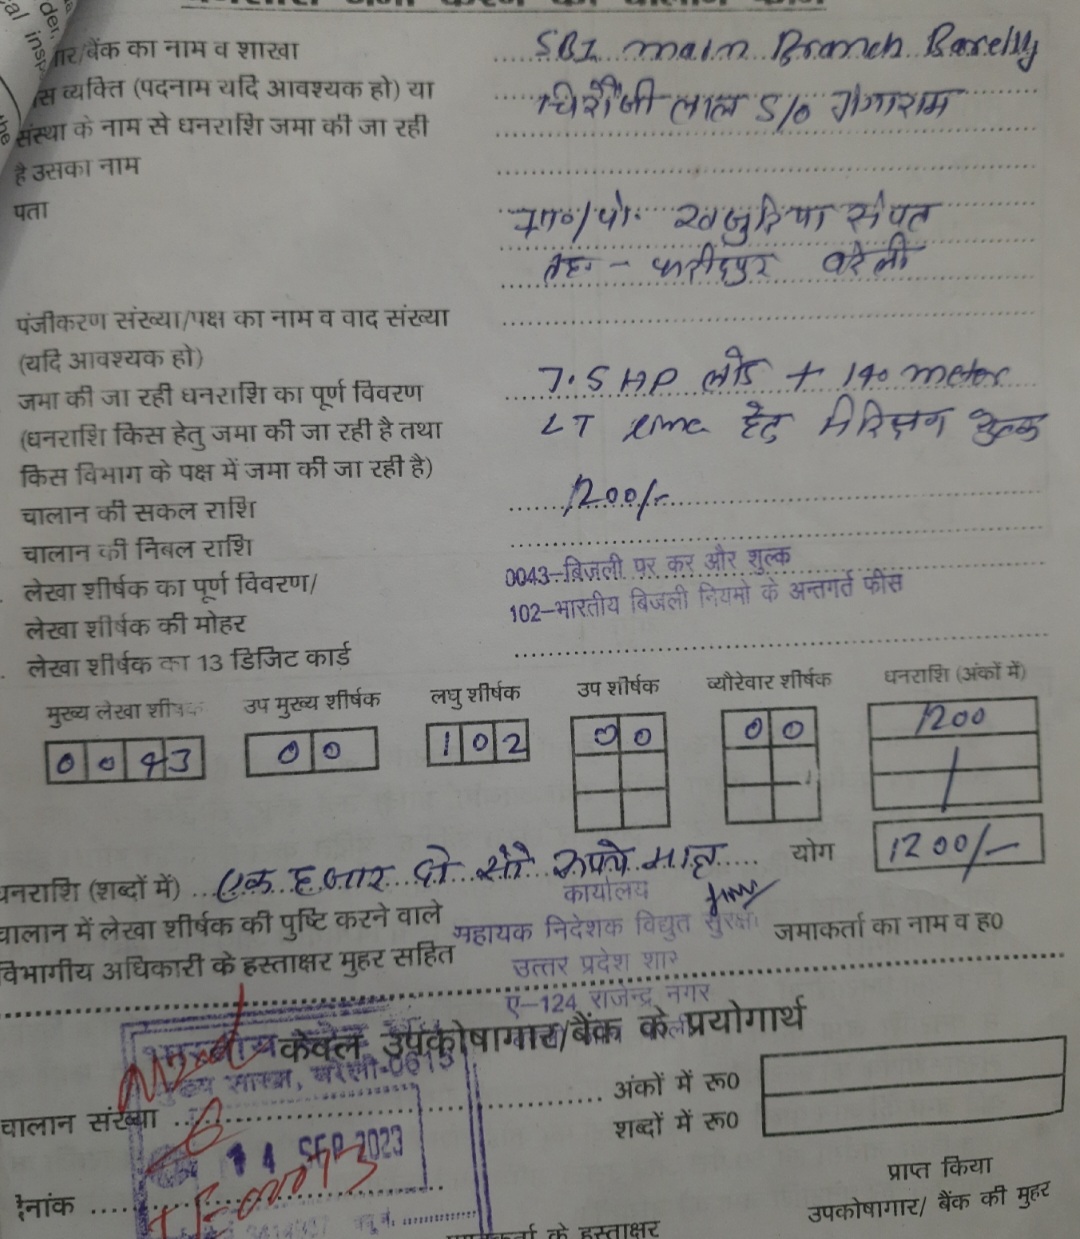 धनराशि जमा करने का चालान फार्म
बैंक का नाम व शाखा SBI main Branch Bareilly
व्यक्ति (पदनाम यदि आवश्यक हो) या चिरौंजी लाल S/o गंगाराम
संस्था के नाम से धनराशि जमा की जा रही
है उसका नाम
पता ग्रा०/पो. खजुरिया संपत
तह०- फरीदपुर बरेली
पंजीकरण संख्या/पक्ष का नाम व वाद संख्या
(यदि आवश्यक हो)
जमा की जा रही धनराशि का पूर्ण विवरण 7.5 HP लोड + 140 meter
(धनराशि किस हेतु जमा की जा रही है तथा LT line हेतु निरिक्षण शुल्क
किस विभाग के पक्ष में जमा की जा रही है)
चालान की सकल राशि 1200/-
चालान की निबल राशि
लेखा शीर्षक का पूर्ण विवरण/ 0043-बिजली पर कर और शुल्क
लेखा शीर्षक की मोहर 102-भारतीय बिजली नियमो के अन्तगर्त फीस
लेखा शीर्षक का 13 डिजिट कार्ड
मुख्य लेखा शीर्षक उप मुख्य शीर्षक लघु शीर्षक उप शीर्षक ब्यौरेवार शीर्षक धनराशि (अंकों में)
0 0 4 3 0 0 1 0 2 0 0 0 0 1200
योग 1200/-
धनराशि (शब्दों में) एक हजार दो सौ रूपये मात्र
कार्यालय
चालान में लेखा शीर्षक की पुष्टि करने वाले सहायक निदेशक विद्युत सुरक्षा जमाकर्ता का नाम व ह0
विभागीय अधिकारी के हस्ताक्षर मुहर सहित उत्तर प्रदेश
ए-124 राजेन्द्र नगर
केवल उपकोषागार/बैंक के प्रयोगार्थ
मुख्य शाखा, बरेली-0615
अंकों में रू0
चालान संख्या
शब्दों में रू0
14 SEP 2023
प्राप्त किया
उपकोषागार/ बैंक की मुहर
के हस्ताक्षर